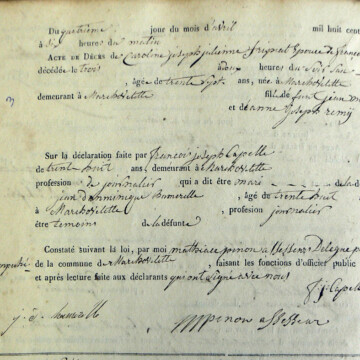 Du quatrième jour du mois d'avril mil huit cent
à six heures du matin
ACTE DE DÉCÈS de Caroline joseph julienne fripiat Epouse de françois
décédée le trois à onze heures du
âgée de trente sept ans, née à Marchovelette
demeurant à Marchovelette fille de feu jean
et de anne joseph remy
Sur la déclaration faite par François joseph Capelle
de trente huit ans, demeurant à Marchovelette
profession de journalier qui a dit être mari de la d
jean dominique âgé de trente huit
à Marchovelette profession journalier
être temoin de la défunte
Constaté suivant la loi, par moi mathieu pinon assesseur Delegué
de la commune de Marchovelette, faisant les fonctions d'officier public
et après lecture faite aux déclarants qui ont signé avec nous
Capel
j. d.
M pinon assesseur